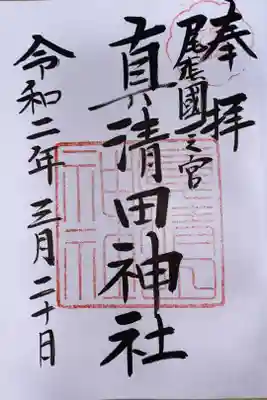 奉拝
尾張國一之宮
真清田神社
令和二年三月二十日